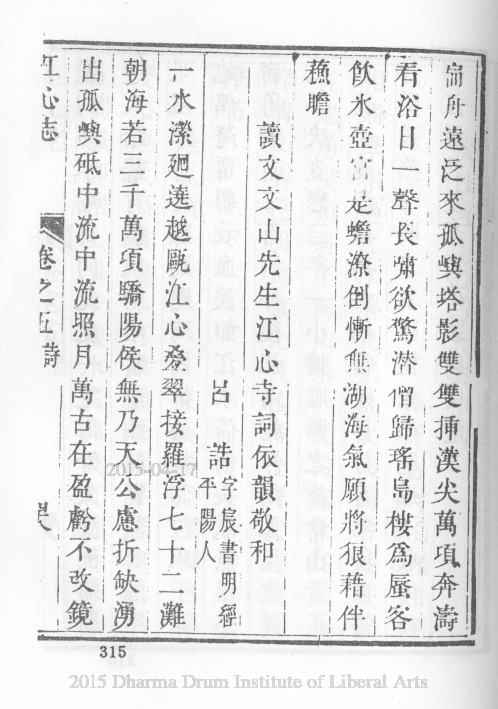 舟遠泛來孤嶼塔影雙雙揷漢尖萬項奔濤
看浴日一聲長嘯欲驚潜僧歸瑤島樓為蜃客
飲氷壺宦是蟾潦倒慚無湖海氣願將狠藉伴
蘓瞻
讀文文山先生江心寺詞依韻敬和
呂誥字宸書明經平陽人
一水瀠廻遶越甌江心叠翠接羅浮七十二灘
朝海若三千萬項驕陽侯無乃天公慮折缺湧
出孤嶼砥中流中流照月萬古在盈虧不改鏡
江心志
卷之五詩
2015-04-17
315
2015 Dharma Drum Institute of Liberal Arts